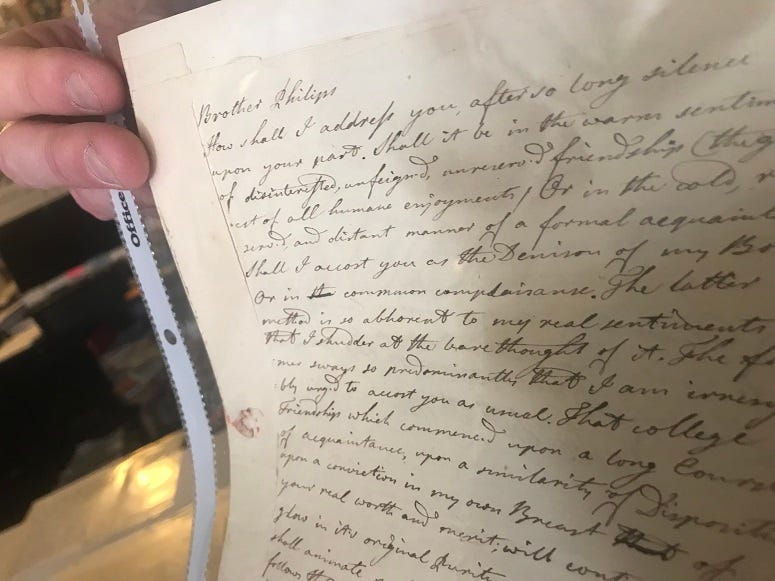 Office
Brother Philips
How shall I address you, after so long silence
upon your part. Shall it be in the warm
of disinterested, unfeigned, unreserv'd friendship (the
of all humane enjoyments) Or in the cold,
and distant manner of a formal
Shall I accost you as the Denison of my
Or in the commmon complaisanse. The latter
method is so abhorent to my real sentiments
that I shudder at the bare thought of it. The
mer sways so predominantly that I am
bly urg'd to accost you as usual. That college
Friendship which commenc'd upon a long
of acquaintance, upon a similarity of
upon a conviction in my own Breast of
your real worth and merit; will
glow in its original Purity
shall animate
follows